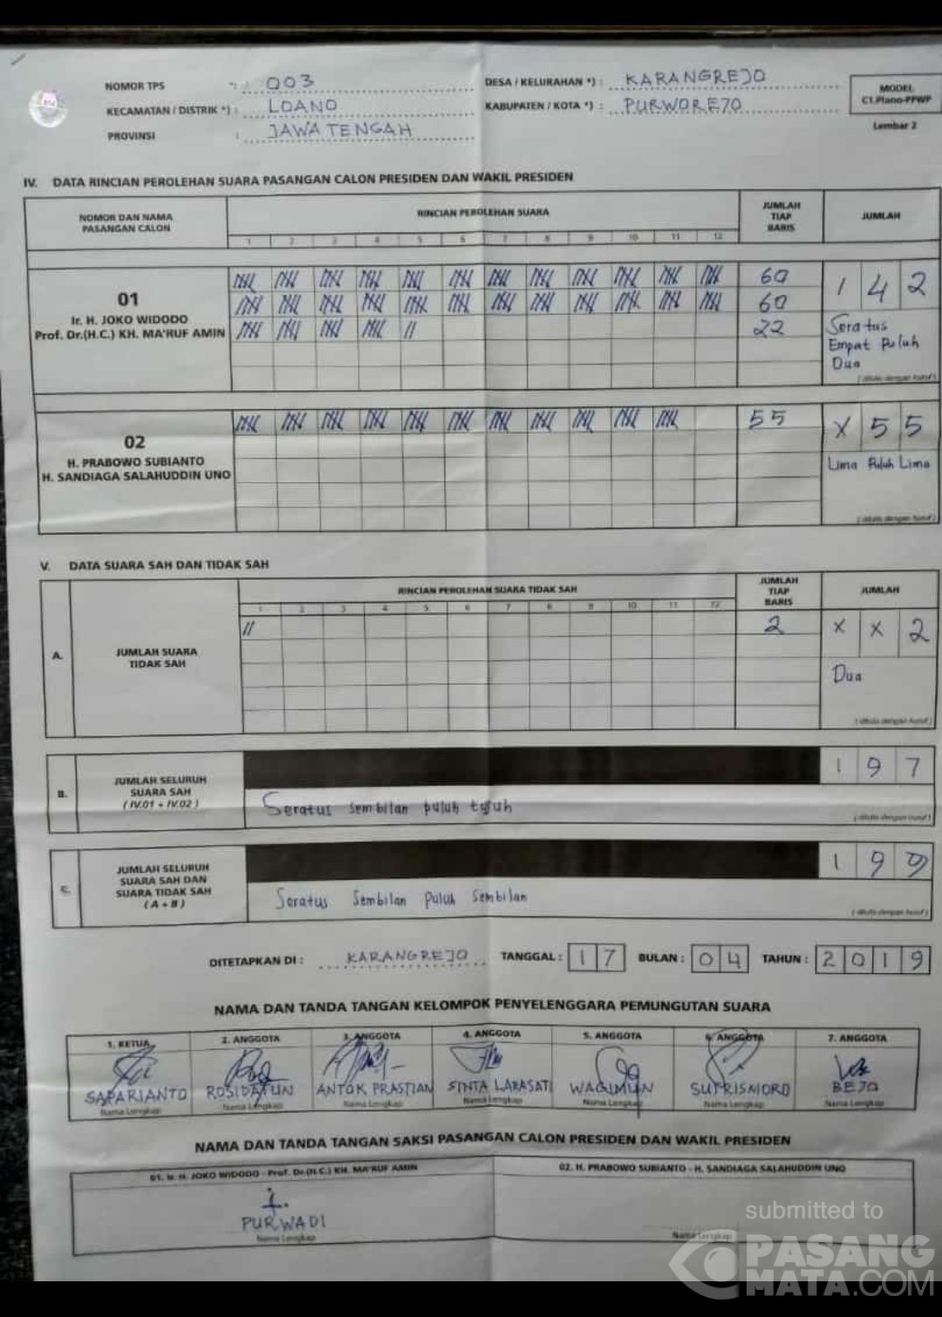 NOMOR TPS : 003
DESA / KELURAHAN *) : KARANGREJO
MODEL
C1.Plano-PPWP
KECAMATAN / DISTRIK *) : LOANO
KABUPATEN / KOTA *) : PURWOREJO
Lembar 2
PROVINSI : JAWA TENGAH
IV. DATA RINCIAN PEROLEHAN SUARA PASANGAN CALON PRESIDEN DAN WAKIL PRESIDEN
NOMOR DAN NAMA
PASANGAN CALON
RINCIAN PEROLEHAN SUARA
JUMLAH
TIAP
BARIS
JUMLAH
1 2 3 4 5 6 7 8 9 10 11 12
01
Ir. H. JOKO WIDODO
Prof. Dr.(H.C.) KH. MA'RUF AMIN
60
60
22
1 4 2
Seratus
Empat Puluh
Dua
( ditulis dengan huruf )
02
H. PRABOWO SUBIANTO
H. SANDIAGA SALAHUDDIN UNO
55
X 5 5
Lima Puluh Lima
( ditulis dengan huruf )
V. DATA SUARA SAH DAN TIDAK SAH
RINCIAN PEROLEHAN SUARA TIDAK SAH
JUMLAH
TIAP
BARIS
JUMLAH
1 2 3 4 5 6 7 8 9 10 11 12
A.
JUMLAH SUARA
TIDAK SAH
2
X X 2
Dua
( ditulis dengan huruf )
B.
JUMLAH SELURUH
SUARA SAH
( IV.01 + IV.02 )
1 9 7
Seratus Sembilan puluh tujuh
( ditulis dengan huruf )
C.
JUMLAH SELURUH
SUARA SAH DAN
SUARA TIDAK SAH
( A + B )
1 9 9
Seratus Sembilan Puluh Sembilan
( ditulis dengan huruf )
DITETAPKAN DI : KARANGREJO TANGGAL : 17 BULAN : 04 TAHUN : 2019
NAMA DAN TANDA TANGAN KELOMPOK PENYELENGGARA PEMUNGUTAN SUARA
1. KETUA 2. ANGGOTA 3. ANGGOTA 4. ANGGOTA 5. ANGGOTA 6. ANGGOTA 7. ANGGOTA
SAPARIANTO ROSIDATUN ANTOK PRASTIAN SINTA LARASATI WAGIMUN SUTRISNORO BEJO
Nama Lengkap Nama Lengkap Nama Lengkap Nama Lengkap Nama Lengkap Nama Lengkap Nama Lengkap
NAMA DAN TANDA TANGAN SAKSI PASANGAN CALON PRESIDEN DAN WAKIL PRESIDEN
01. Ir. H. JOKO WIDODO - Prof. Dr.(H.C.) KH. MA'RUF AMIN
02. H. PRABOWO SUBIANTO - H. SANDIAGA SALAHUDDIN UNO
PURWADI
Nama Lengkap
Nama Lengkap
submitted to
PASANG
MATA.COM